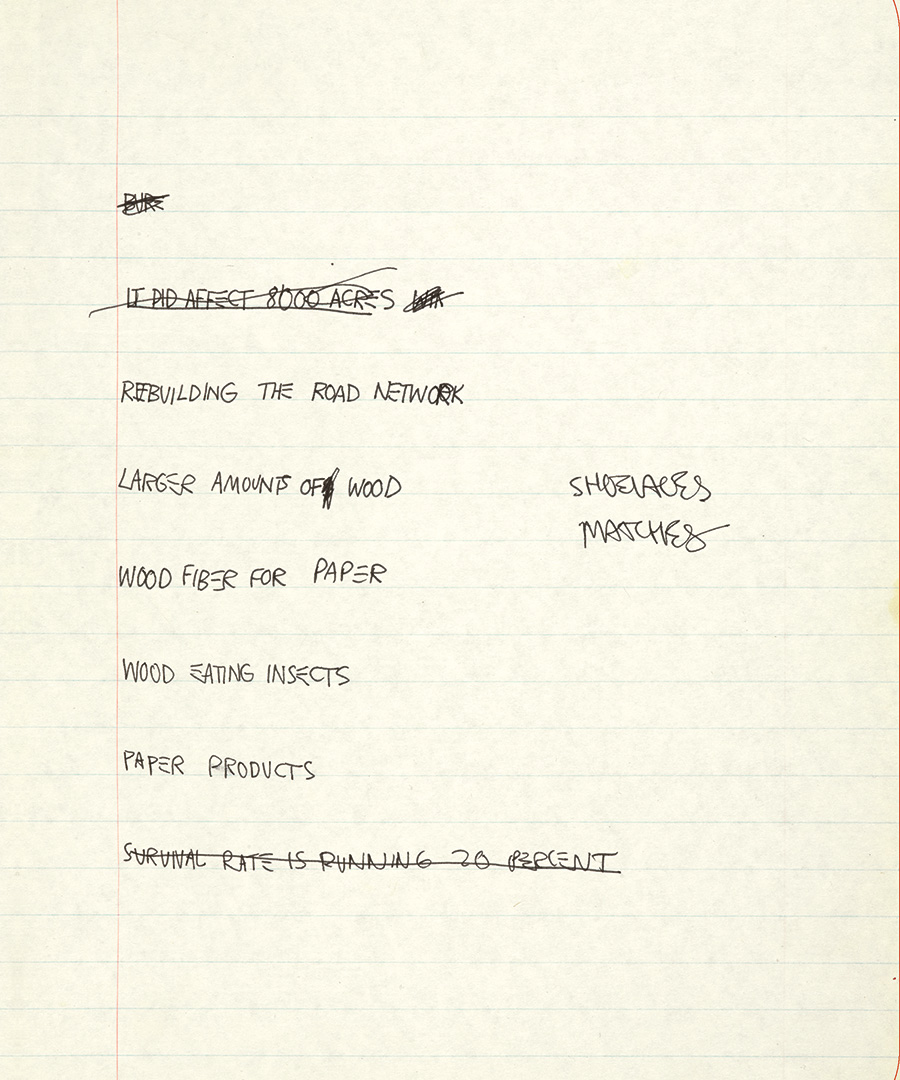 IT DID AFFECT 8000 ACRES
REBUILDING THE ROAD NETWORK
LARGER AMOUNTS OF WOOD
SHOELACES
MATCHES
WOOD FIBER FOR PAPER
WOOD EATING INSECTS
PAPER PRODUCTS
SURVIVAL RATE IS RUNNING 20 PERCENT